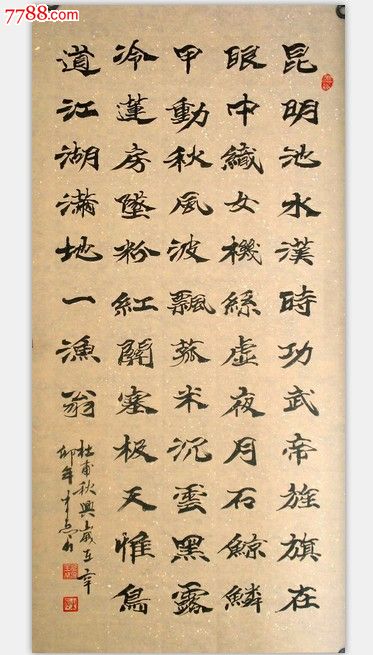 7788.com
昆明池水漢時功武帝旌旗在
眼中織女機絲虛夜月石鯨鱗
甲動秋風波飄菰米沉雲黑露
冷蓮房墜粉紅關塞极天惟鳥
道江湖滿地一漁翁
杜甫秋興歲在辛
卯年